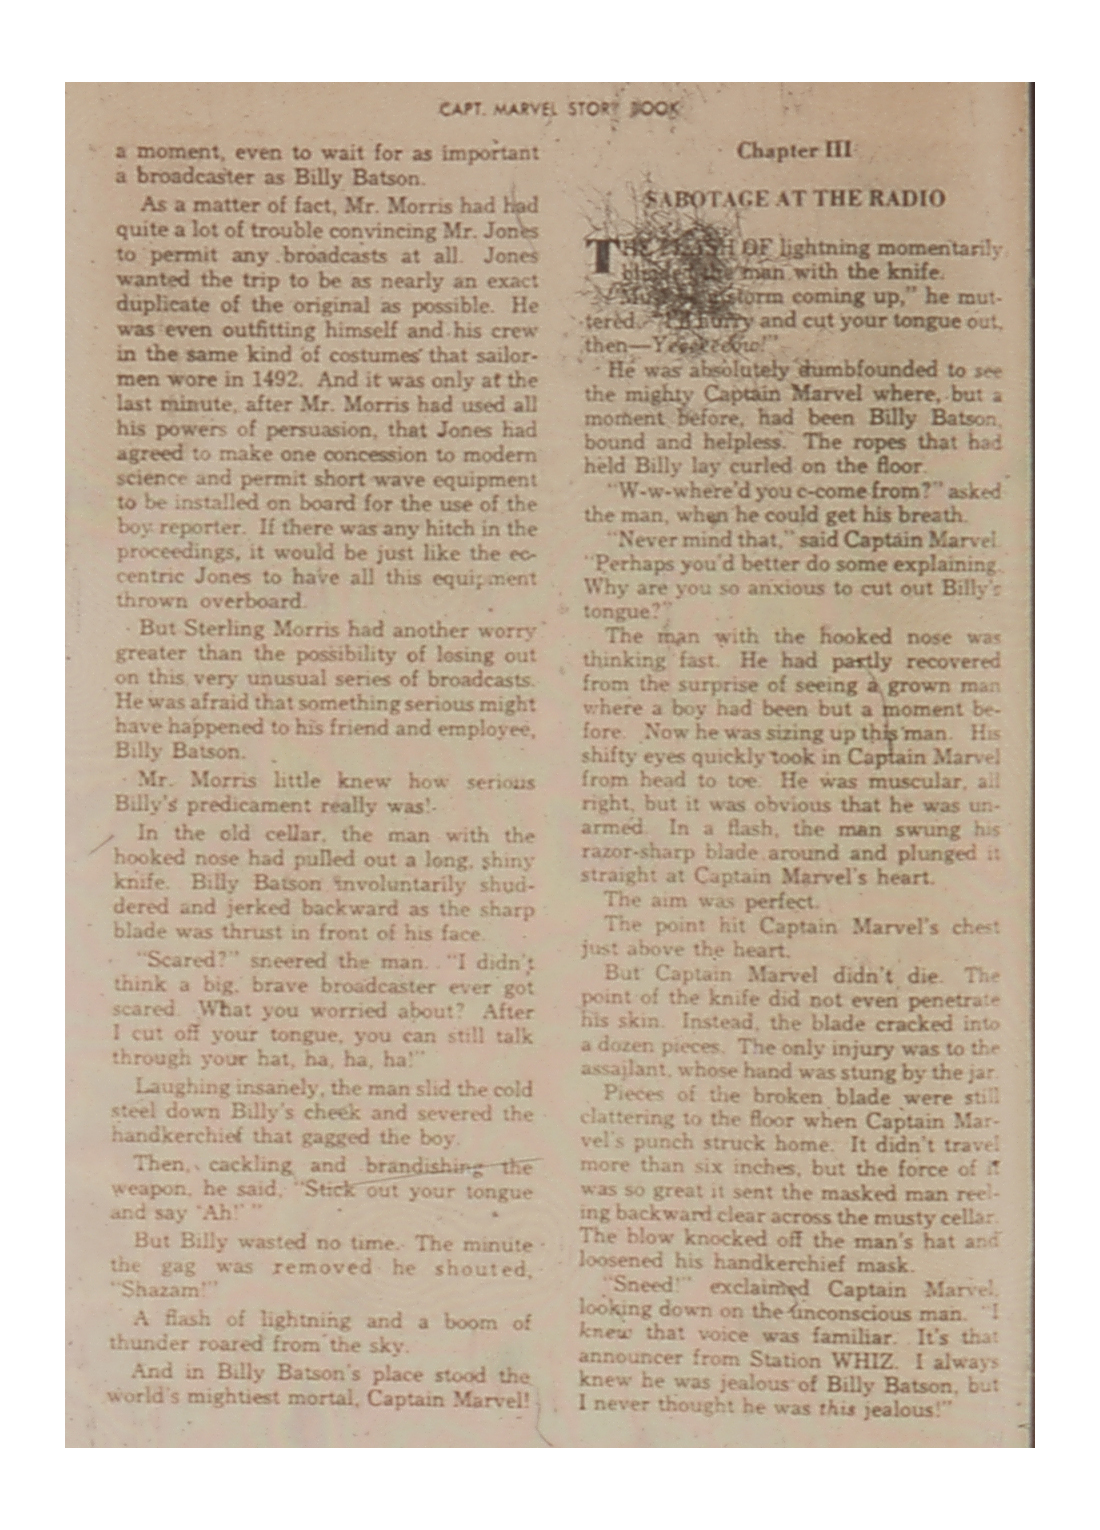 CAPT. MARVEL STORY BOOK
a moment, even to wait for as important
a broadcaster as Billy Batson.
As a matter of fact, Mr. Morris had had
quite a lot of trouble convincing Mr. Jones
to permit any broadcasts at all. Jones
wanted the trip to be as nearly an exact
duplicate of the original as possible. He
was even outfitting himself and his crew
in the same kind of costumes that sailor-
men wore in 1492. And it was only at the
last minute, after Mr. Morris had used all
his powers of persuasion, that Jones had
agreed to make one concession to modern
science and permit short wave equipment
to be installed on board for the use of the
boy reporter. If there was any hitch in the
proceedings, it would be just like the ec-
centric Jones to have all this equipment
thrown overboard.
But Sterling Morris had another worry
greater than the possibility of losing out
on this very unusual series of broadcasts.
He was afraid that something serious might
have happened to his friend and employee,
Billy Batson.
Mr. Morris little knew how serious
Billy's predicament really was!
In the old cellar, the man with the
hooked nose had pulled out a long, shiny
knife. Billy Batson involuntarily shud-
dered and jerked backward as the sharp
blade was thrust in front of his face.
"Scared?" sneered the man. "I didn't
think a big, brave broadcaster ever got
scared. What you worried about? After
I cut off your tongue, you can still talk
through your hat, ha, ha, ha!"
Laughing insanely, the man slid the cold
steel down Billy's cheek and severed the
handkerchief that gagged the boy.
Then, cackling and brandishing the
weapon, he said, "Stick out your tongue
and say 'Ah!' "
But Billy wasted no time. The minute
the gag was removed he shouted,
"Shazam!"
A flash of lightning and a boom of
thunder roared from the sky.
And in Billy Batson's place stood the
world's mightiest mortal, Captain Marvel!
Chapter III
SABOTAGE AT THE RADIO
THE FLASH OF lightning momentarily
blinded the man with the knife.
"Must be a storm coming up," he mut-
tered. "I'll hurry and cut your tongue out,
then—Yeeeeeow!"
He was absolutely dumbfounded to see
the mighty Captain Marvel where, but a
moment before, had been Billy Batson,
bound and helpless. The ropes that had
held Billy lay curled on the floor.
"W-w-where'd you c-come from?" asked
the man, when he could get his breath.
"Never mind that," said Captain Marvel.
"Perhaps you'd better do some explaining.
Why are you so anxious to cut out Billy's
tongue?"
The man with the hooked nose was
thinking fast. He had partly recovered
from the surprise of seeing a grown man
where a boy had been but a moment be-
fore. Now he was sizing up this man. His
shifty eyes quickly took in Captain Marvel
from head to toe. He was muscular, all
right, but it was obvious that he was un-
armed. In a flash, the man swung his
razor-sharp blade around and plunged it
straight at Captain Marvel's heart.
The aim was perfect.
The point hit Captain Marvel's chest
just above the heart.
But Captain Marvel didn't die. The
point of the knife did not even penetrate
his skin. Instead, the blade cracked into
a dozen pieces. The only injury was to the
assailant, whose hand was stung by the jar.
Pieces of the broken blade were still
clattering to the floor when Captain Mar-
vel's punch struck home. It didn't travel
more than six inches, but the force of it
was so great it sent the masked man reel-
ing backward clear across the musty cellar.
The blow knocked off the man's hat and
loosened his handkerchief mask.
"Sneed!" exclaimed Captain Marvel,
looking down on the unconscious man. "I
knew that voice was familiar. It's that
announcer from Station WHIZ. I always
knew he was jealous of Billy Batson, but
I never thought he was this jealous!"